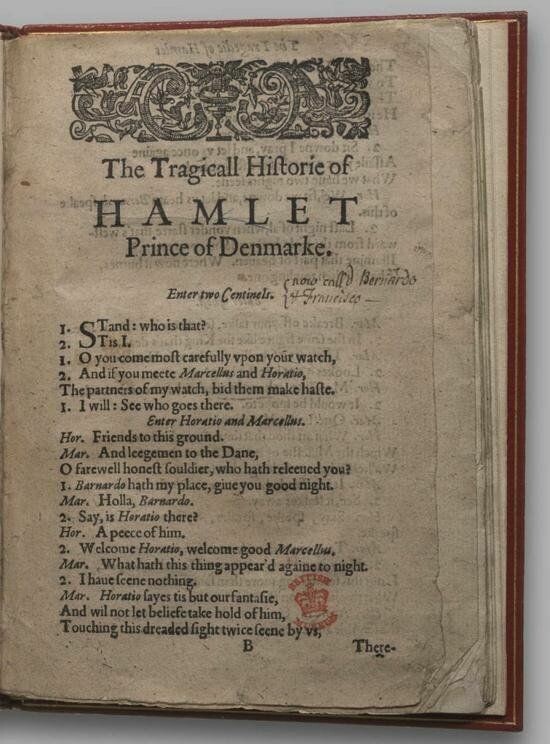 The Tragicall Hiſtorie of
HAMLET
Prince of Denmarke.
Enter two Centinels. {now call'd Bernardo
& Francisco —
1. STand: who is that?
2. Tis I.
1. O you come moſt carefully vpon your watch,
2. And if you meete Marcellus and Horatio,
The partners of my watch, bid them make haſte.
1. I will: See who goes there.
Enter Horatio and Marcellus.
Hor. Friends to this ground.
Mar. And leegemen to the Dane,
O farewell honeſt ſouldier, who hath releeued you?
1. Barnardo hath my place, giue you good night.
Mar. Holla, Barnardo.
2. Say, is Horatio there?
Hor. A peece of him.
2. Welcome Horatio, welcome good Marcellus.
Mar. What hath this thing appear'd againe to night.
2. I haue ſeene nothing.
Mar. Horatio ſayes tis but our fantaſie,
And wil not let beliefe take hold of him,
Touching this dreaded ſight twice ſeene by vs,
B There-
BRITISH
MUSEUM